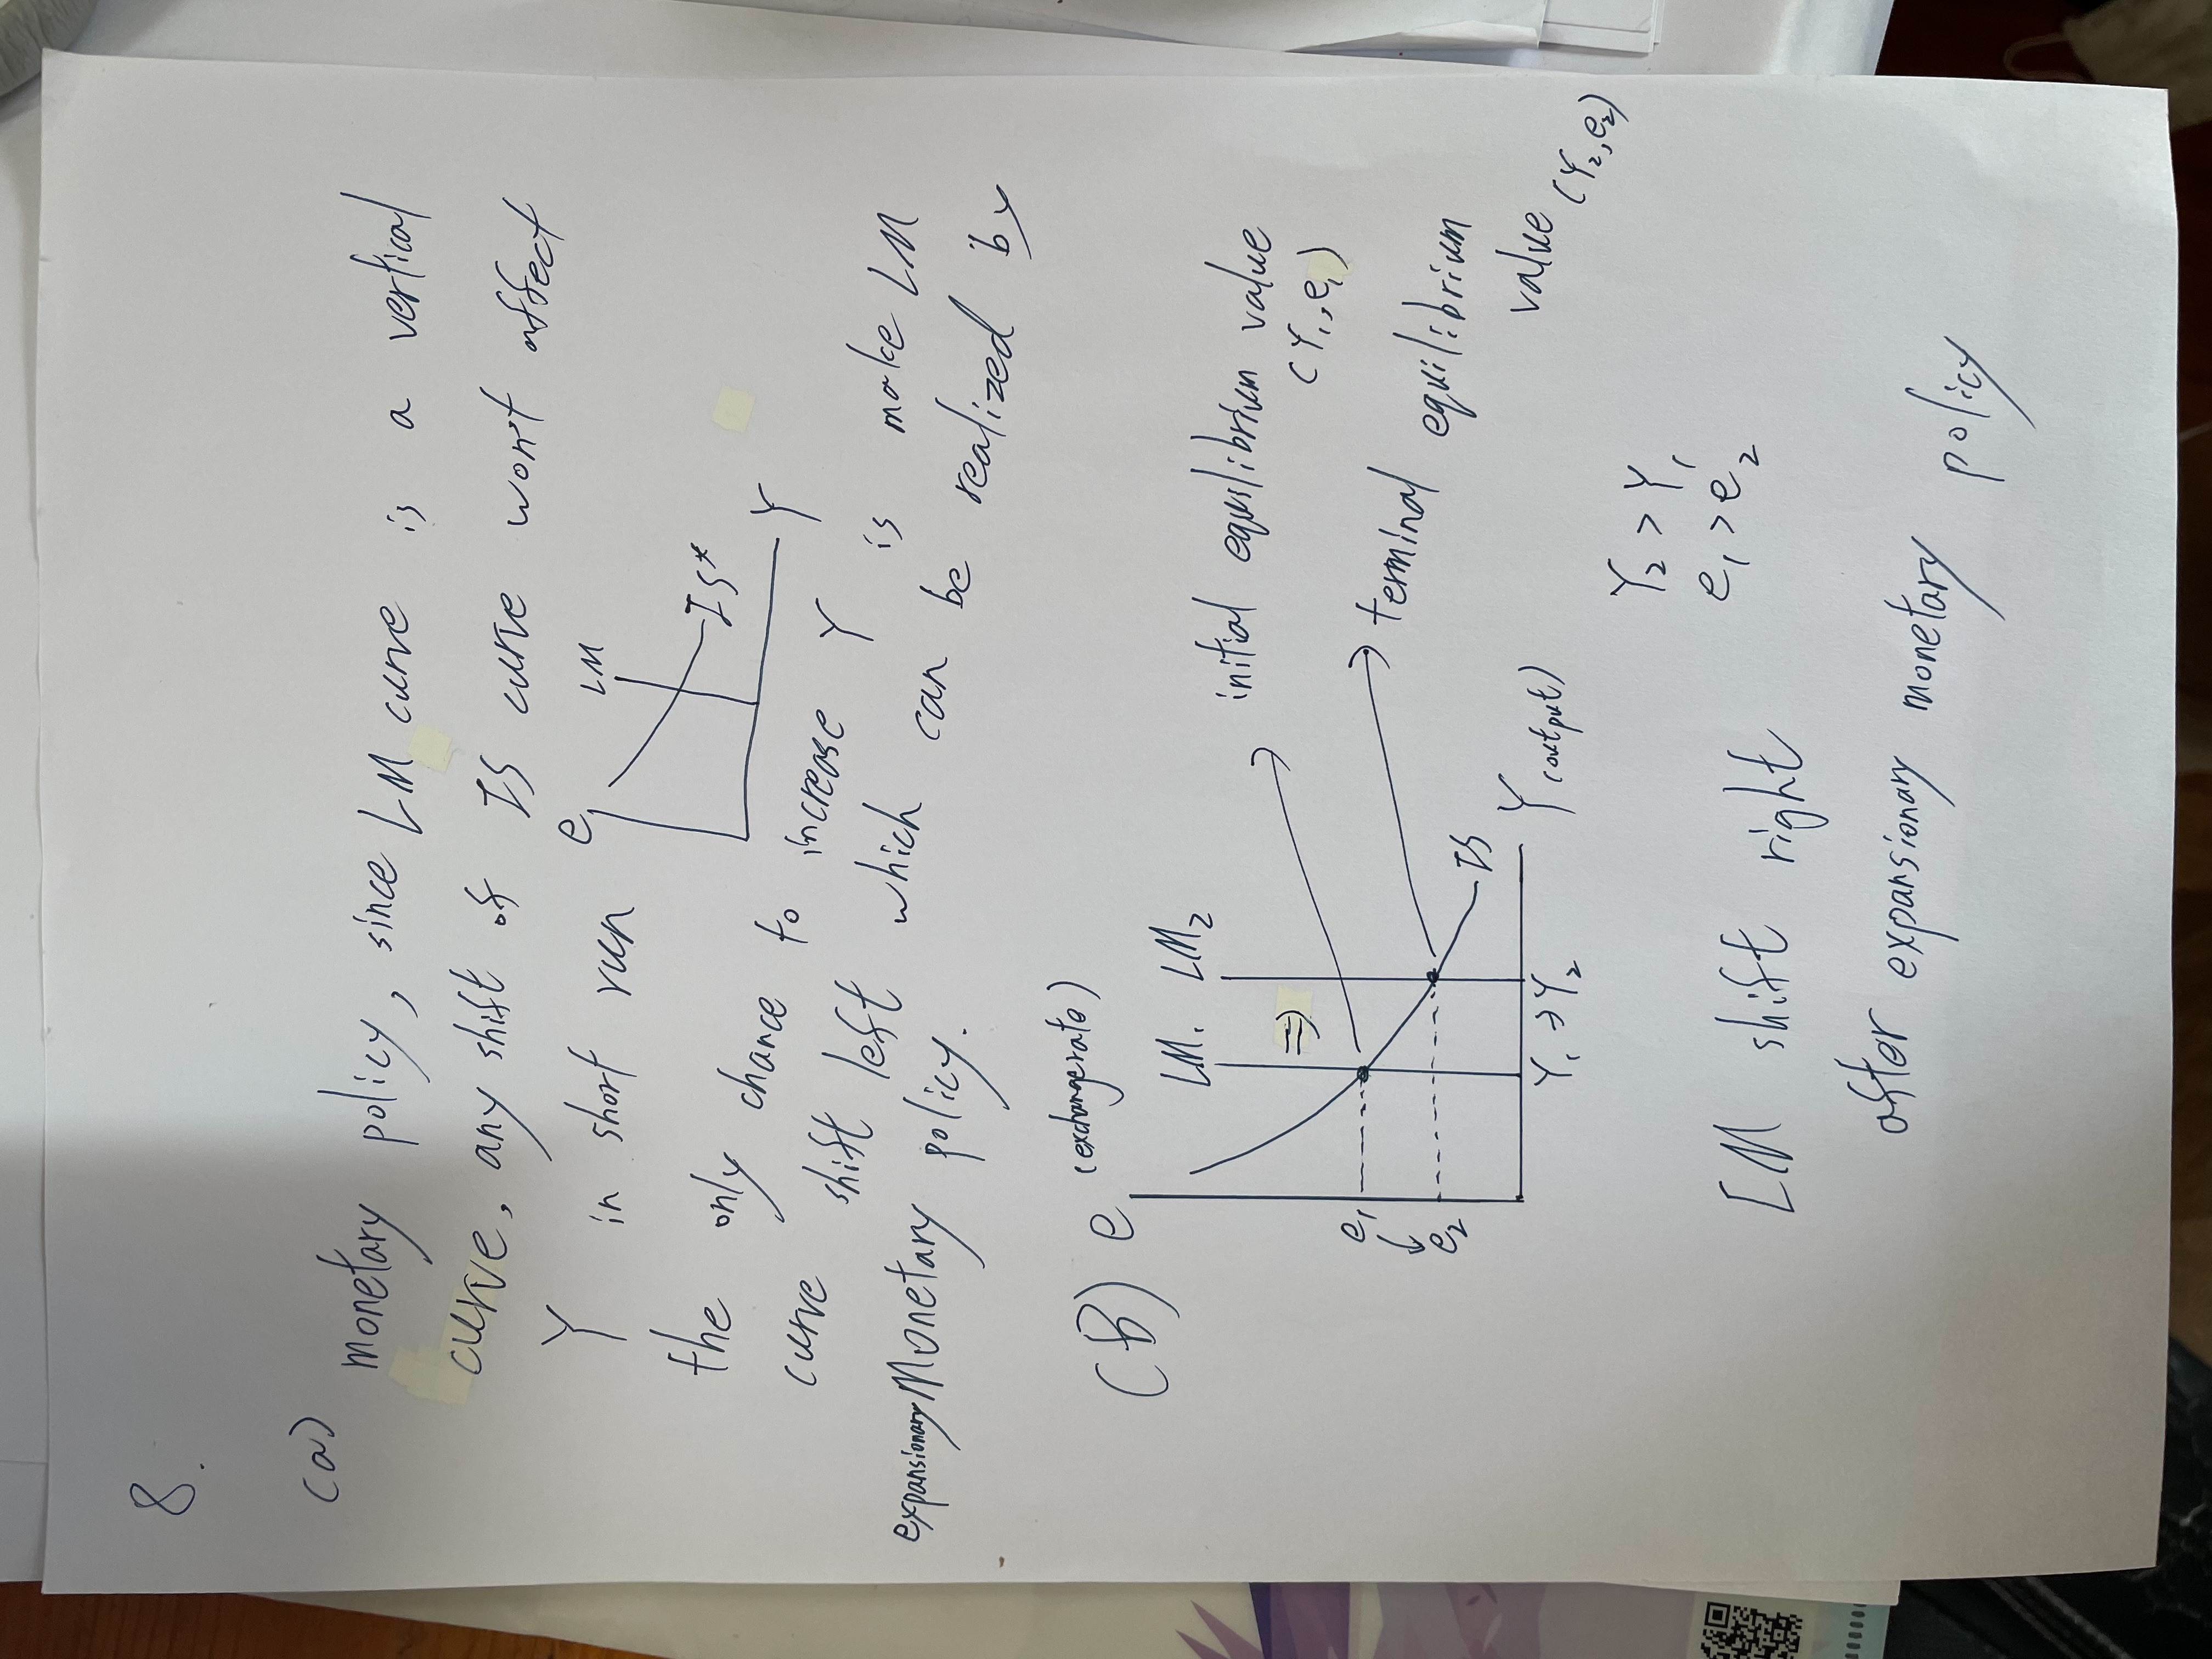 8.
(a)
monetary policy, since LM curve is a vertical
curve, any shift of IS curve won't affect
Y in short run
e
LM
IS*
Y
the only chance to increase Y is make LM
curve shift left which can be realized by
expansionary Monetary policy.
(B) e (exchange rate)
LM₁ LM₂
⇒
initial equilibrium value
(Y₁, e₁)
e₁
↓
e₂
terminal equilibrium
value (Y₂, e₂)
IS
Y (output)
Y₁ ⇒ Y₂
Y₂ > Y₁
e₁ > e₂
LM shift right
after expansionary monetary policy